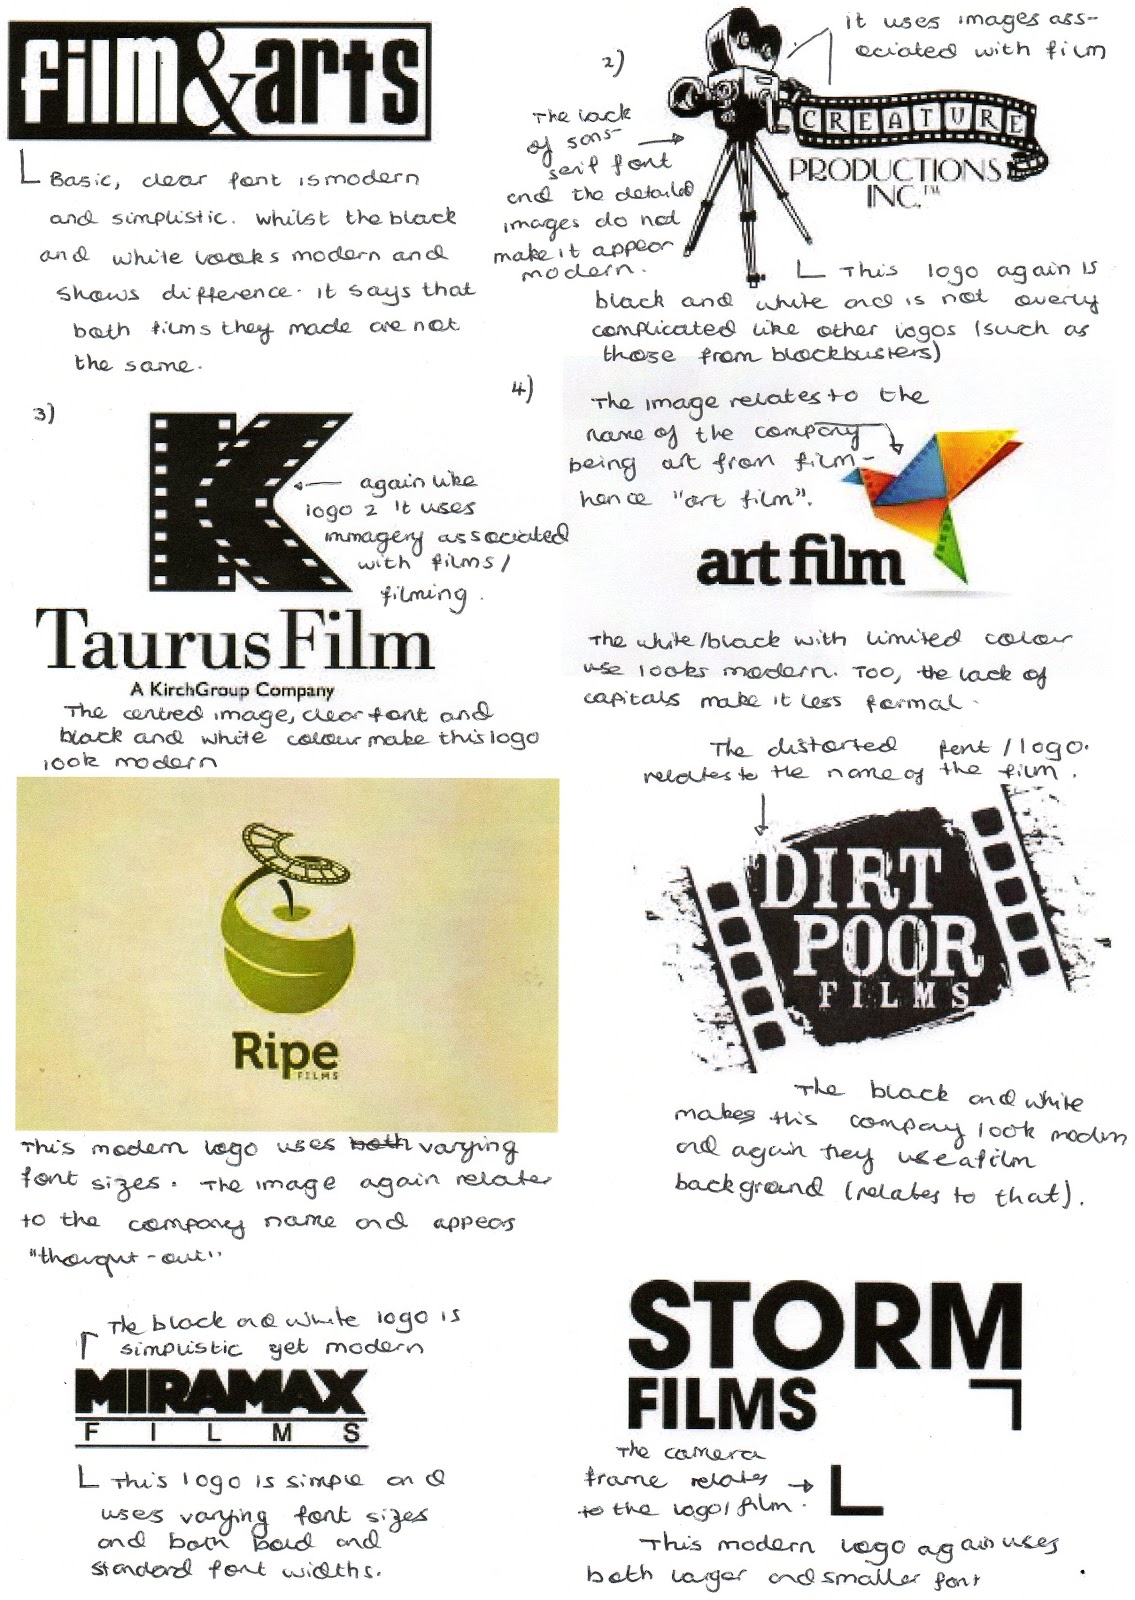 film&arts
Basic, clear font is modern
and simplistic. whilst the black
and white looks modern and
shows difference. it says that
both films they made are not
the same.
2)
it uses images ass-
ociated with film
The lack
of sans-
serif font
and the detailed
images do not
make it appear
modern.
CREATURE
PRODUCTIONS
INC.™
This logo again is
black and white and is not overly
complicated like other logos (such as
those from blockbusters)
3)
again like
logo 2 it uses
immagery associated
with films/
filming.
Taurus Film
A KirchGroup Company
The centred image, clear font and
black and white colour make this logo
look modern
4)
The image relates to the
name of the company
being art from film-
hence "art film".
art film
The white/black with limited colour
use looks modern. Too, the lack of
capitals make it less formal.
Ripe
FILMS
This modern logo uses both varying
font sizes. The image again relates
to the company name and appears
"thought-out"
The distorted font/logo.
relates to the name of the film.
DIRT
POOR
FILMS
The black and white
makes this company look modern
and again they use a film
background (relates to that).
The black and white logo is
simplistic yet modern
MIRAMAX
FILMS
This logo is simple and
uses varying font sizes
and both bold and
standard font widths.
STORM
FILMS
The camera
frame relates
to the logo/film.
This modern logo again uses
both larger and smaller font